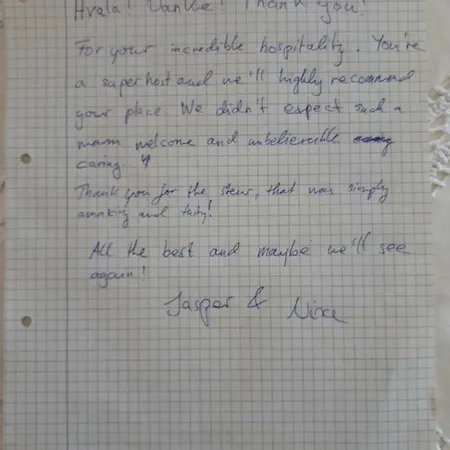 Hvala! Danke! Thank you!
For your incredible hospitality. You're
a superhost and we'll highly recommend
your place. We didn't expect such a
warm welcome and unbelievable
caring.
Thank you for the stew, that was simply
amazing and tasty!
All the best and maybe we'll see
again!
Jasper &